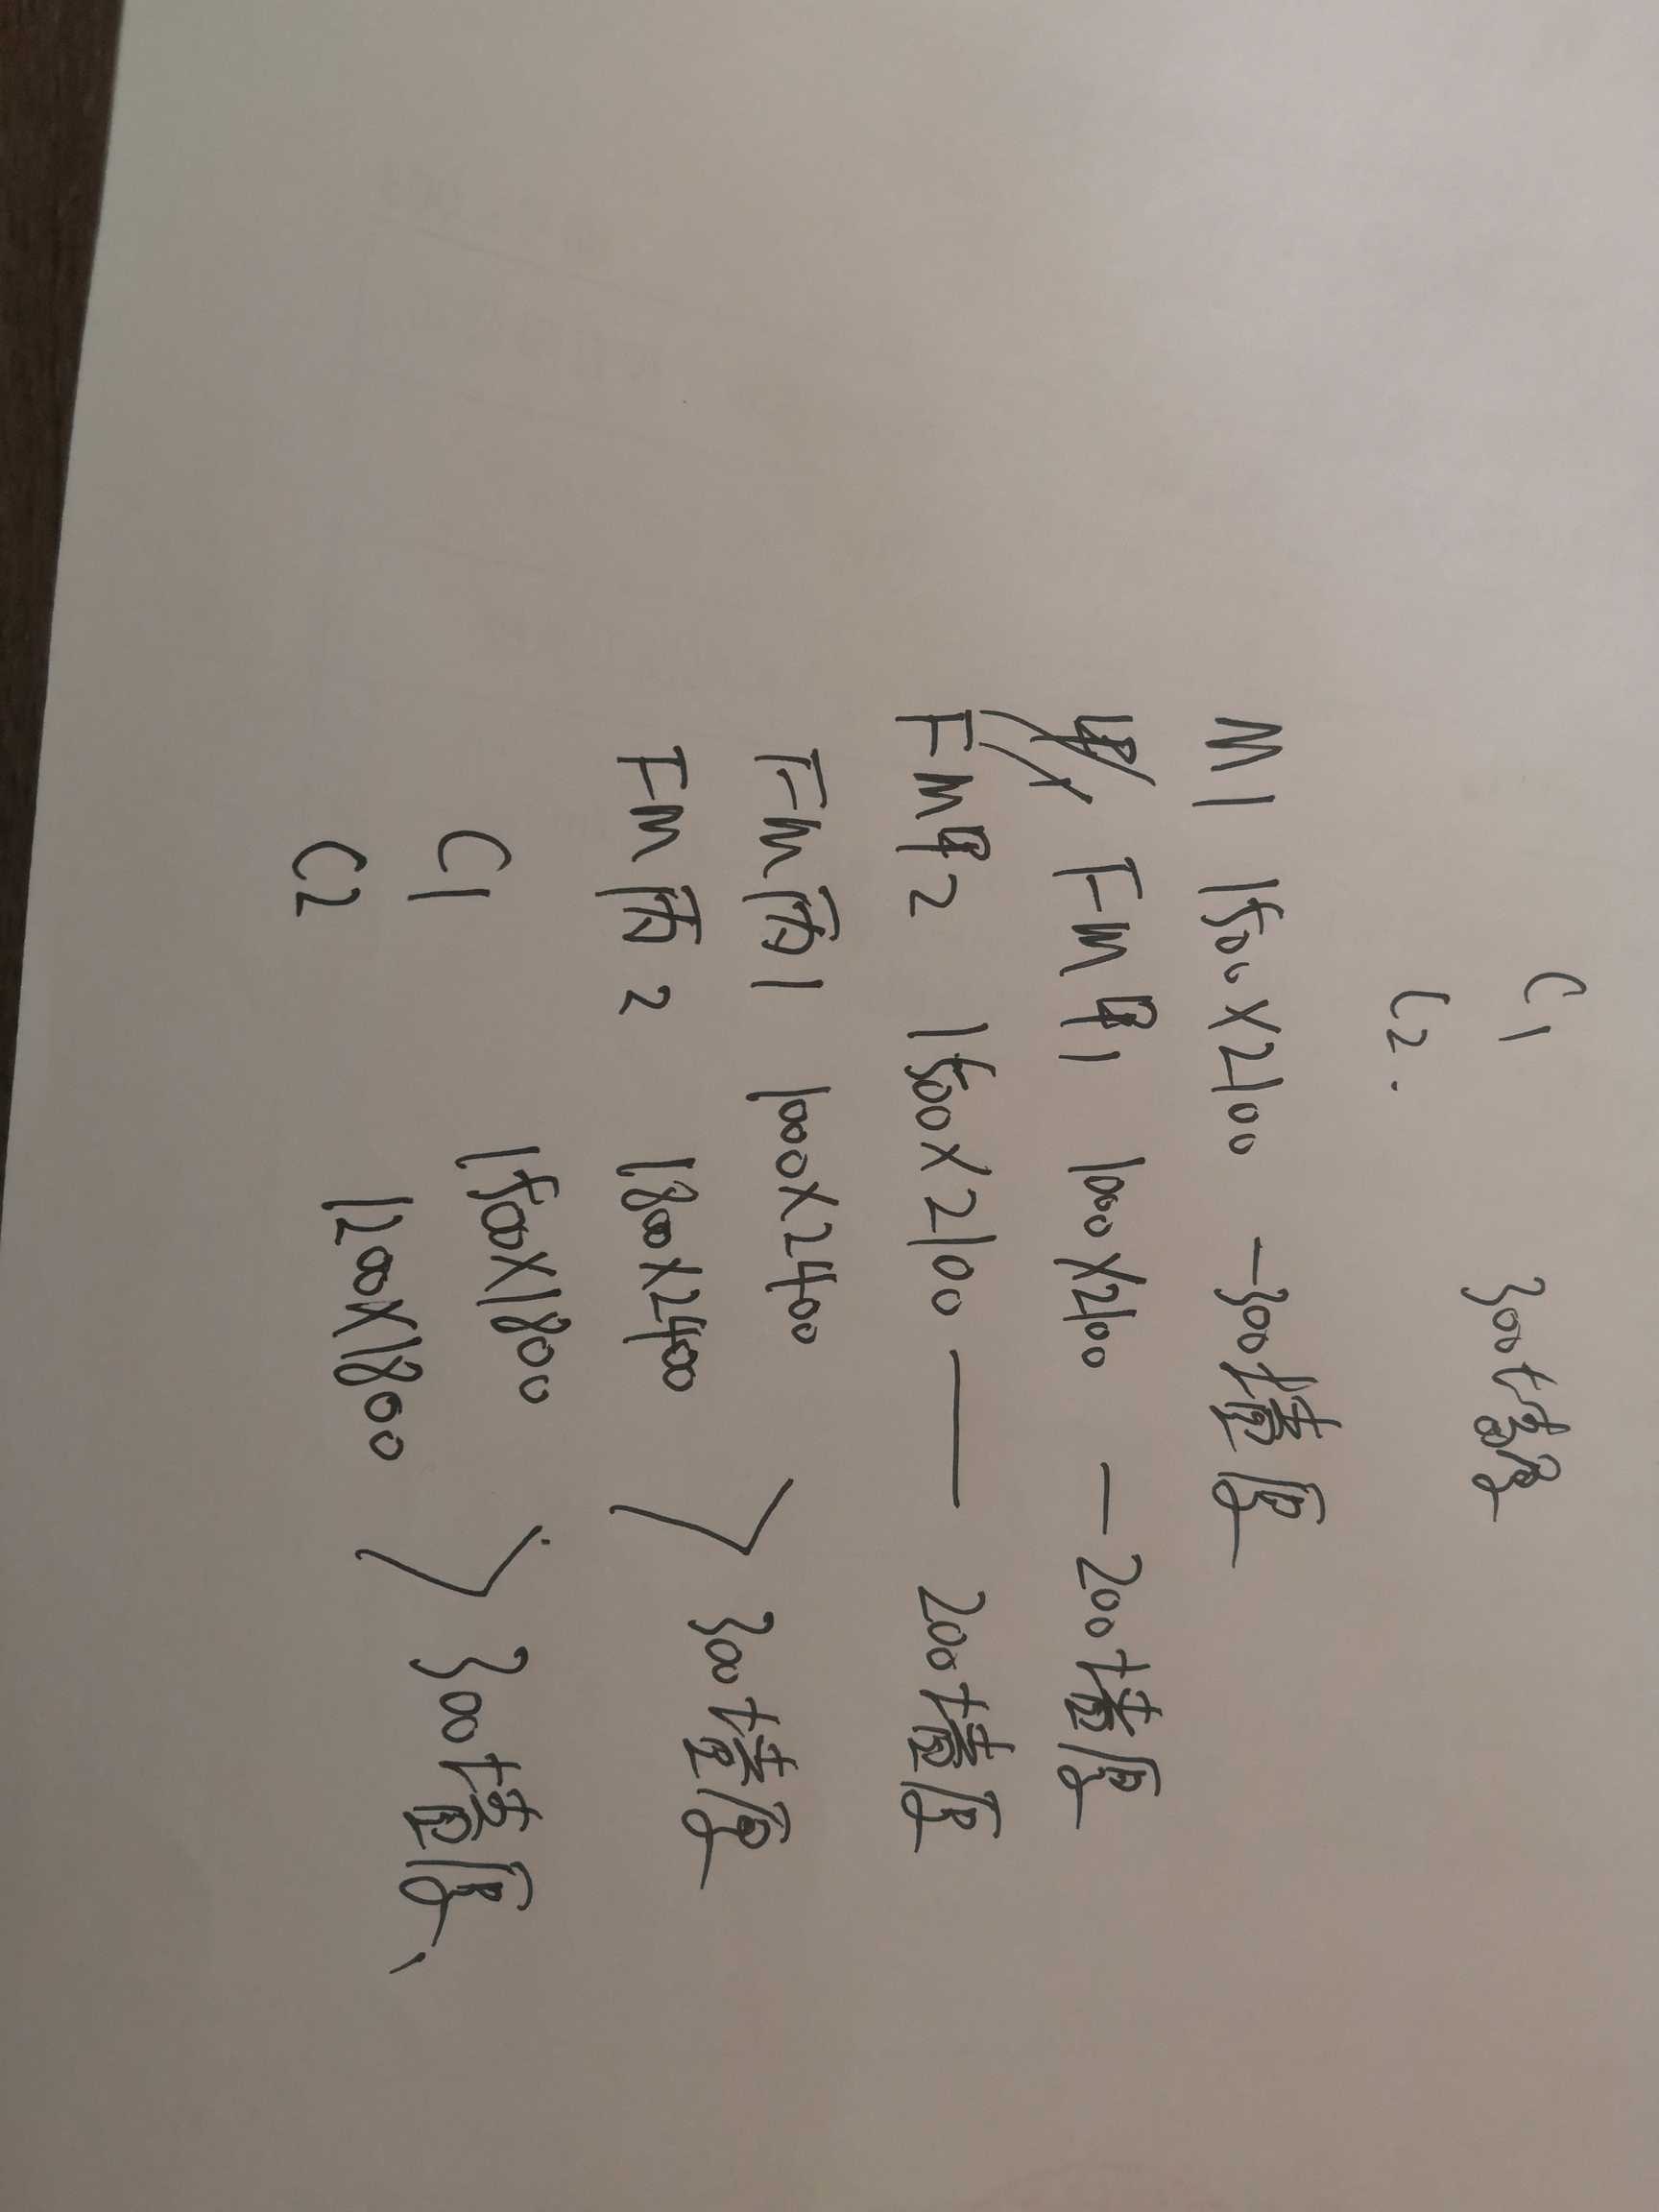 C1 300墙厚
C2.
M1 1500X2100 —300墙厚
FM甲1 1000X2100 —200墙厚
FM甲2 1500X2100 — 200墙厚
FM丙1 1000X2400
FM丙2 1800X2400 300墙厚
C1 1500X1800
C2 1200X1800 300墙厚、